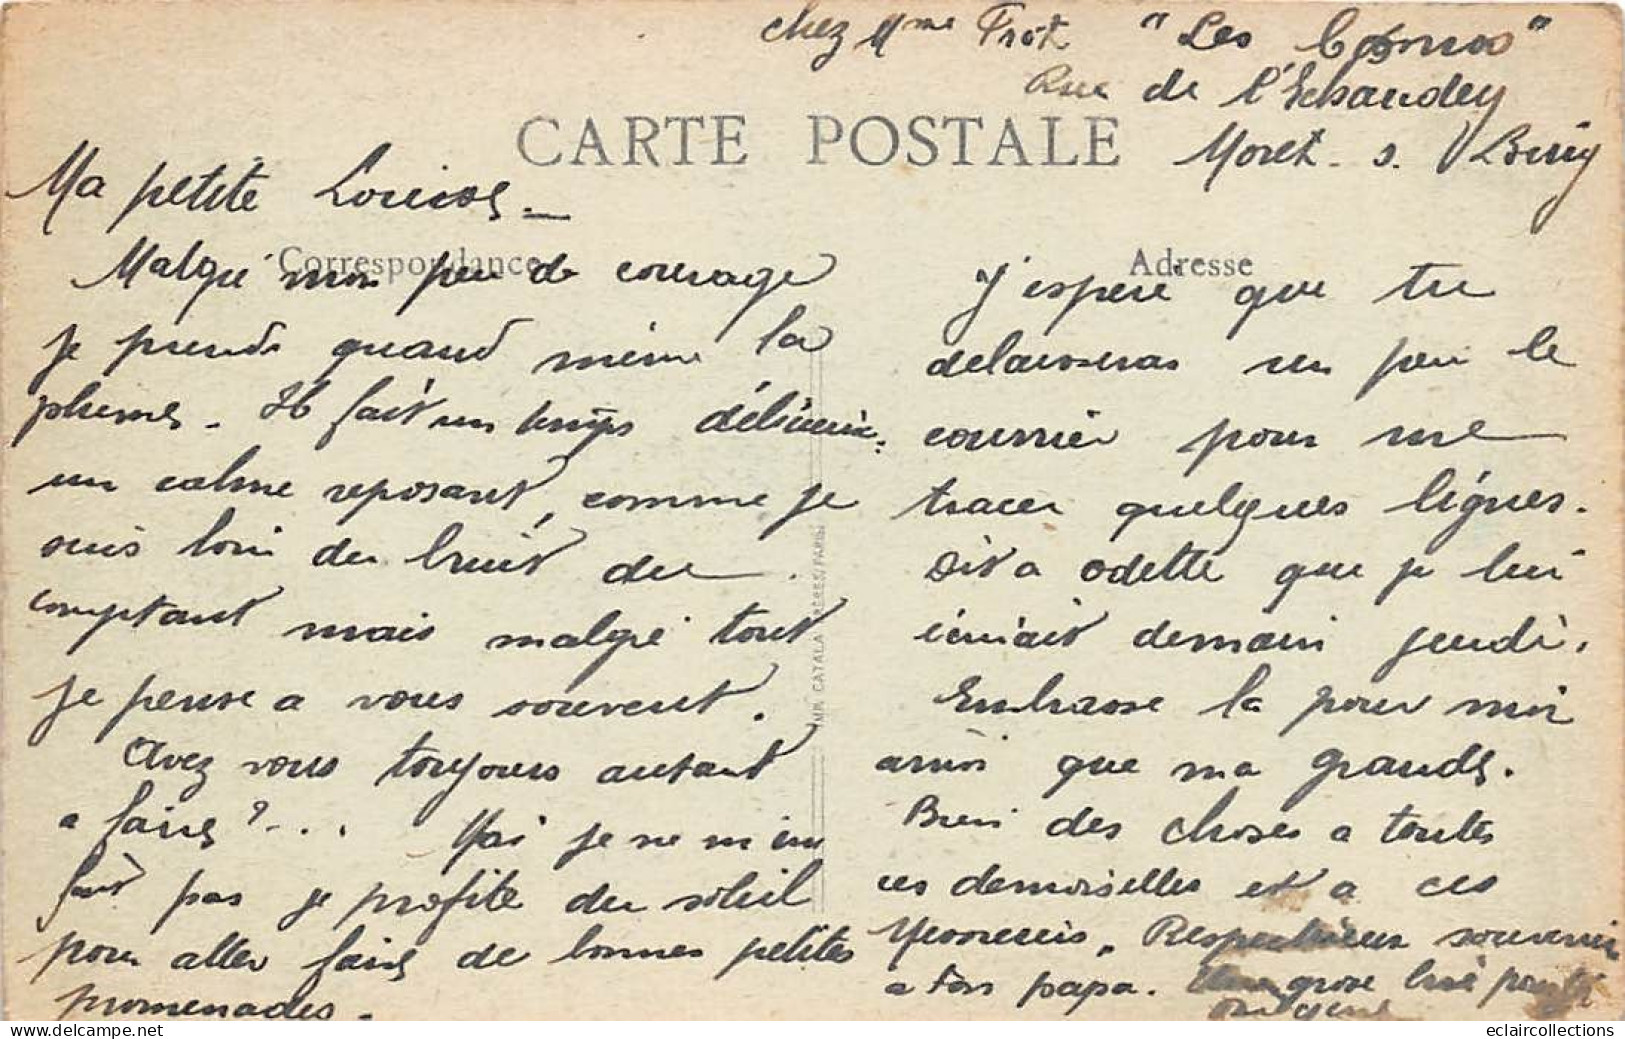 chez Mme Frot "Les Cosmos"
Rue de l'Echaudey
CARTE POSTALE
Moret - s. Loing
Ma petite Louise -
Correspondance
Malgré mon peu de courage
je prends quand même la
plume. Il fait un temps délicieux
un calme reposant, comme je
suis loin du bruit du
comptant mais malgré tout
je pense a vous souvent.
Avez vous toujours autant
a faire ? ...  Moi je ne m'en
fait pas je profite du soleil
pour aller faire de bonnes petites
promenades.
Adresse
J'espère que tu
delaisseras un peu le
courrier pour me
tracer quelques lignes.
Dit a Odette que je lui
écrirait demain jeudi.
Embrasse la pour moi
ainsi que ma grande.
Bien des choses a toutes
ces demoiselles et a ces
Messieurs. Respectueux souvenir
a ton papa. Une grosse bise pour toi
IMP. CATALA FRERES/PARIS
eclaircollections